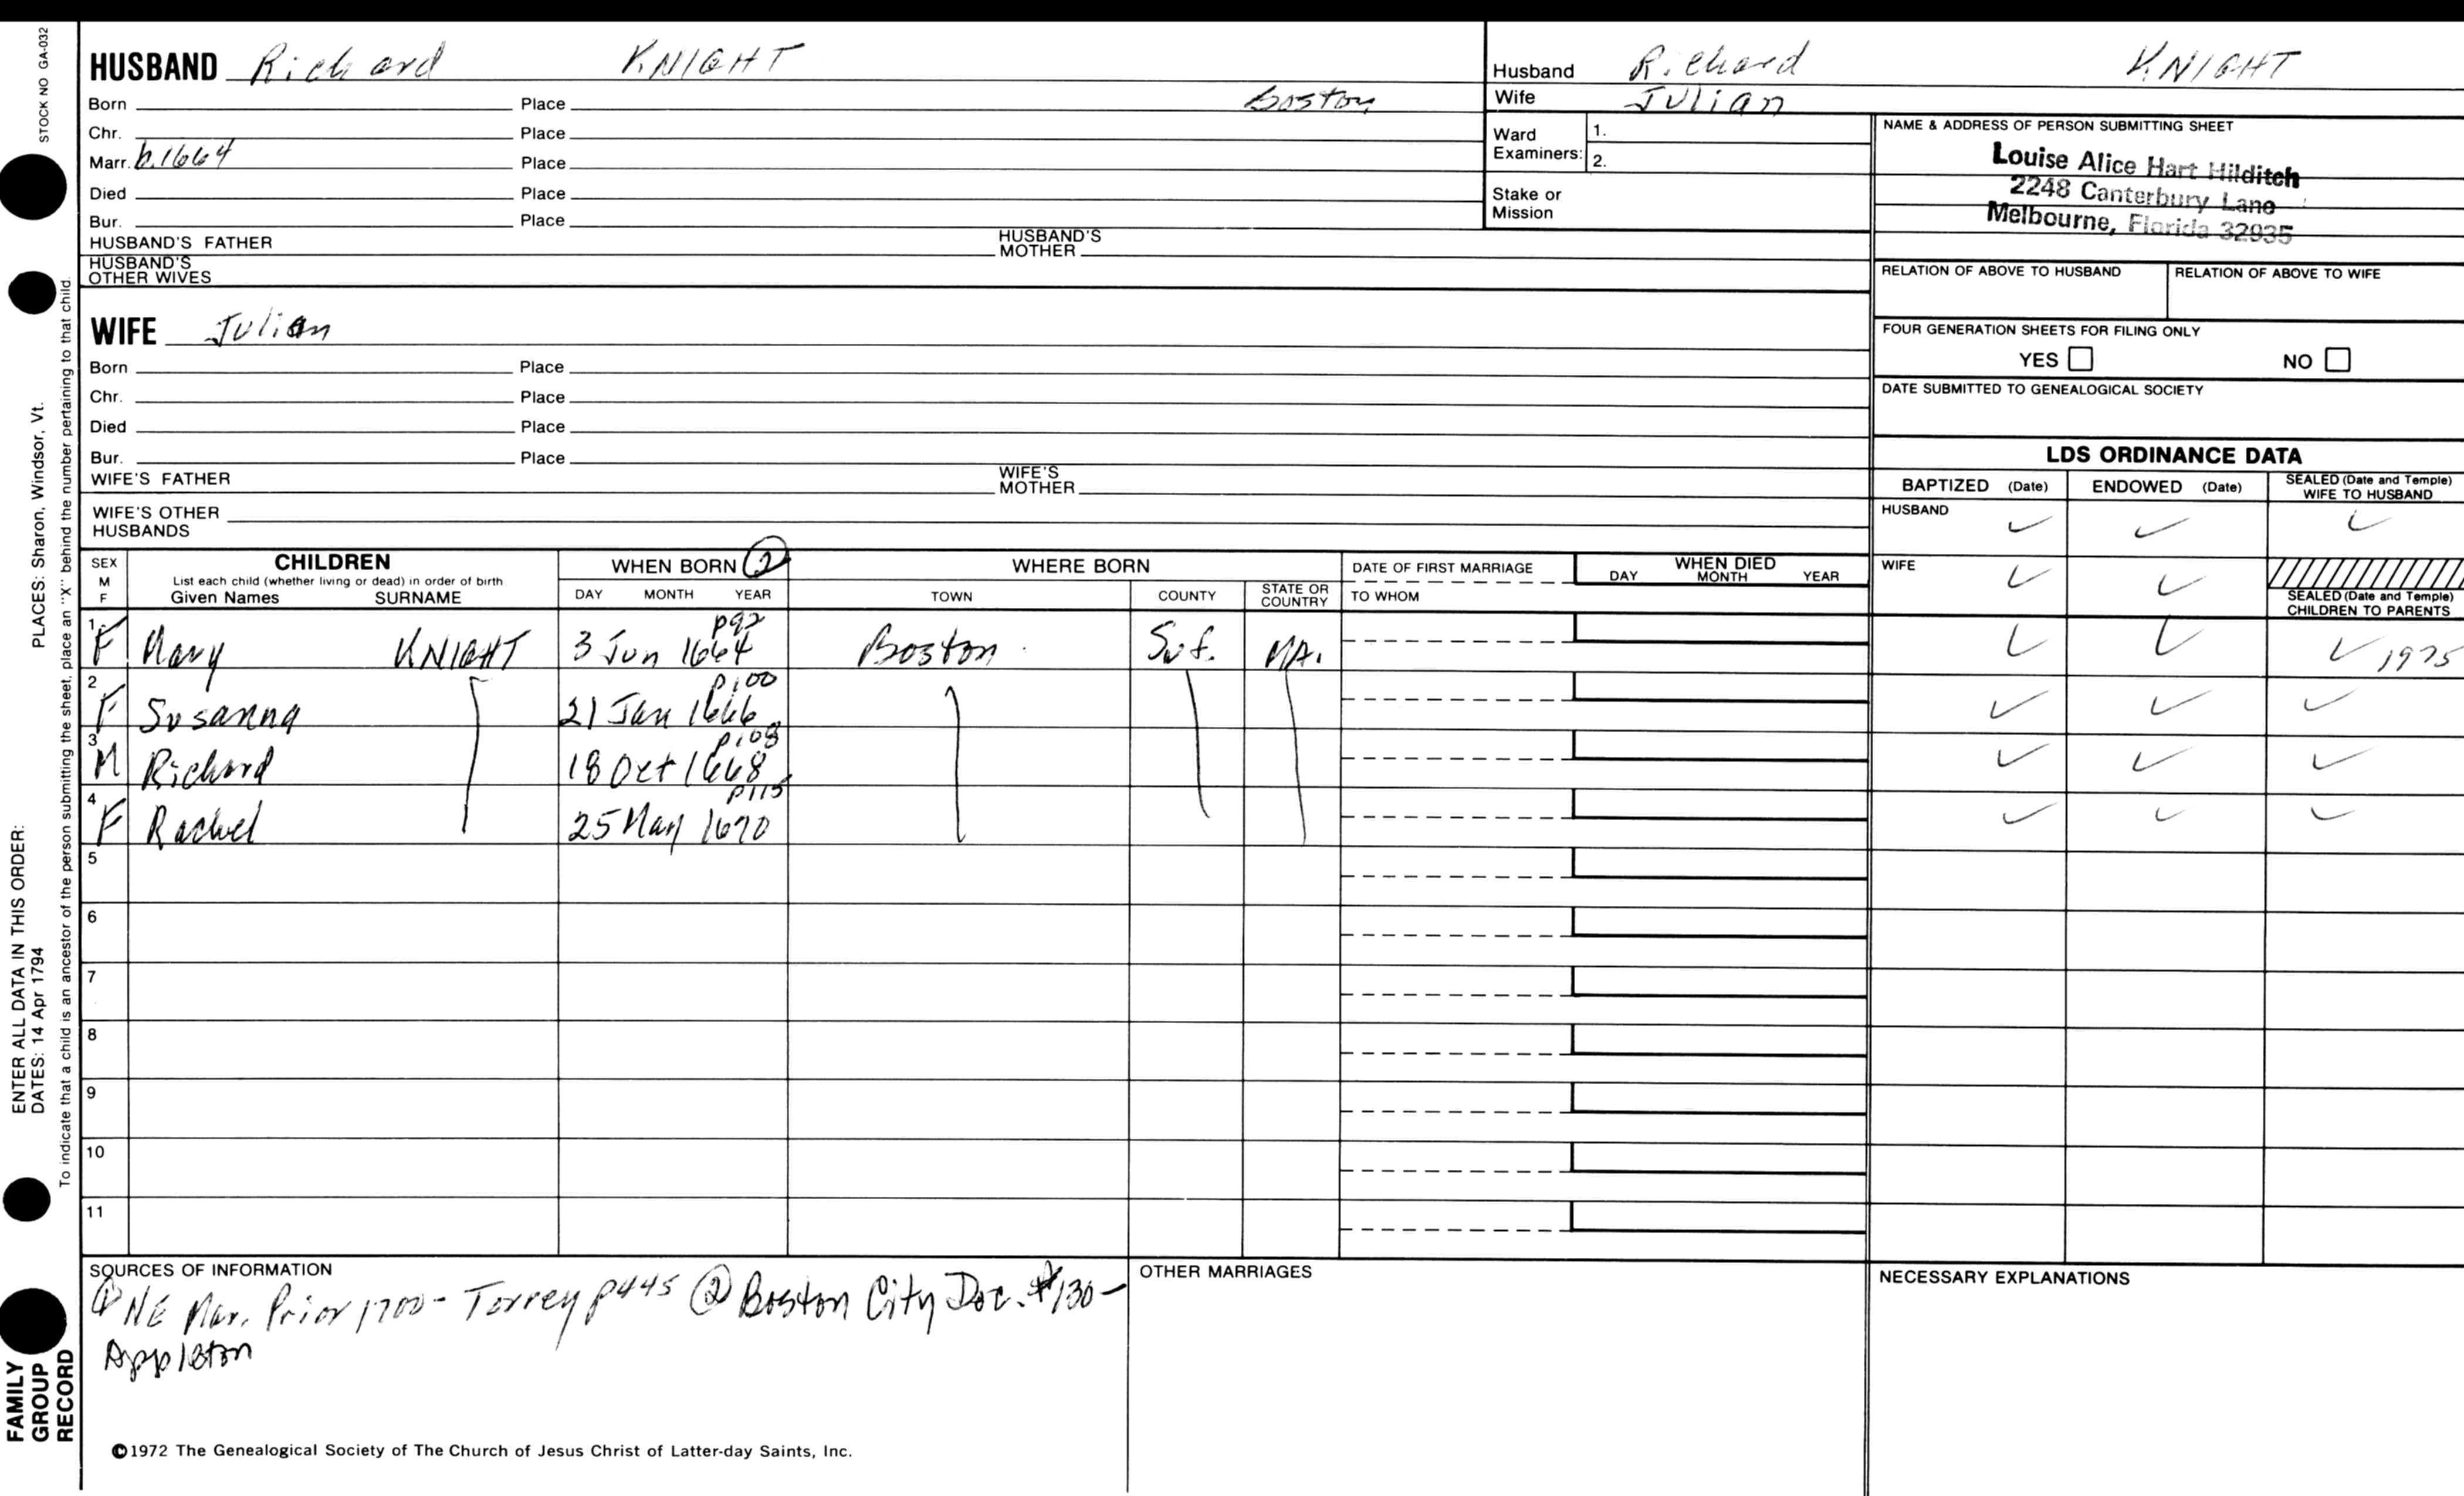 STOCK NO GA-032
HUSBAND Richard KNIGHT
Born Place Boston
Chr. Place
Marr. b.1664 Place
Died Place
Bur. Place
HUSBAND'S FATHER HUSBAND'S MOTHER
HUSBAND'S OTHER WIVES
WIFE Julian
Born Place
Chr. Place
Died Place
Bur. Place
WIFE'S FATHER WIFE'S MOTHER
WIFE'S OTHER HUSBANDS
Husband Richard KNIGHT
Wife Julian
Ward Examiners: 1.
2.
Stake or Mission
NAME & ADDRESS OF PERSON SUBMITTING SHEET
Louise Alice Hart Hilditch
2248 Canterbury Lane
Melbourne, Florida 32935
RELATION OF ABOVE TO HUSBAND RELATION OF ABOVE TO WIFE
FOUR GENERATION SHEETS FOR FILING ONLY
YES NO
DATE SUBMITTED TO GENEALOGICAL SOCIETY
LDS ORDINANCE DATA
BAPTIZED (Date) ENDOWED (Date) SEALED (Date and Temple) WIFE TO HUSBAND
HUSBAND ✓ ✓ ✓
WIFE ✓ ✓
SEALED (Date and Temple) CHILDREN TO PARENTS
SEX M F CHILDREN WHEN BORN ② WHERE BORN DATE OF FIRST MARRIAGE WHEN DIED
List each child (whether living or dead) in order of birth
Given Names SURNAME DAY MONTH YEAR TOWN COUNTY STATE OR COUNTRY TO WHOM DAY MONTH YEAR
p92
1 F Mary KNIGHT 3 Jun 1664 Boston Suf. MA. ✓ ✓ ✓ 1975
p100
2 F Susanna 21 Jan 1666 ✓ ✓ ✓
p108
3 M Richard 18 Oct 1668 ✓ ✓ ✓
p115
4 F Rachel 25 May 1670 ✓ ✓ ✓
5
6
7
8
9
10
11
SOURCES OF INFORMATION
① NE Mar. Prior 1700 - Torrey p445 ② Boston City Doc. #130 -
Appleton
OTHER MARRIAGES
NECESSARY EXPLANATIONS
©1972 The Genealogical Society of The Church of Jesus Christ of Latter-day Saints, Inc.
ENTER ALL DATA IN THIS ORDER:
DATES: 14 Apr 1794 PLACES: Sharon, Windsor, Vt.
To indicate that a child is an ancestor of the person submitting the sheet, place an "X" behind the number pertaining to that child.
FAMILY
GROUP
RECORD